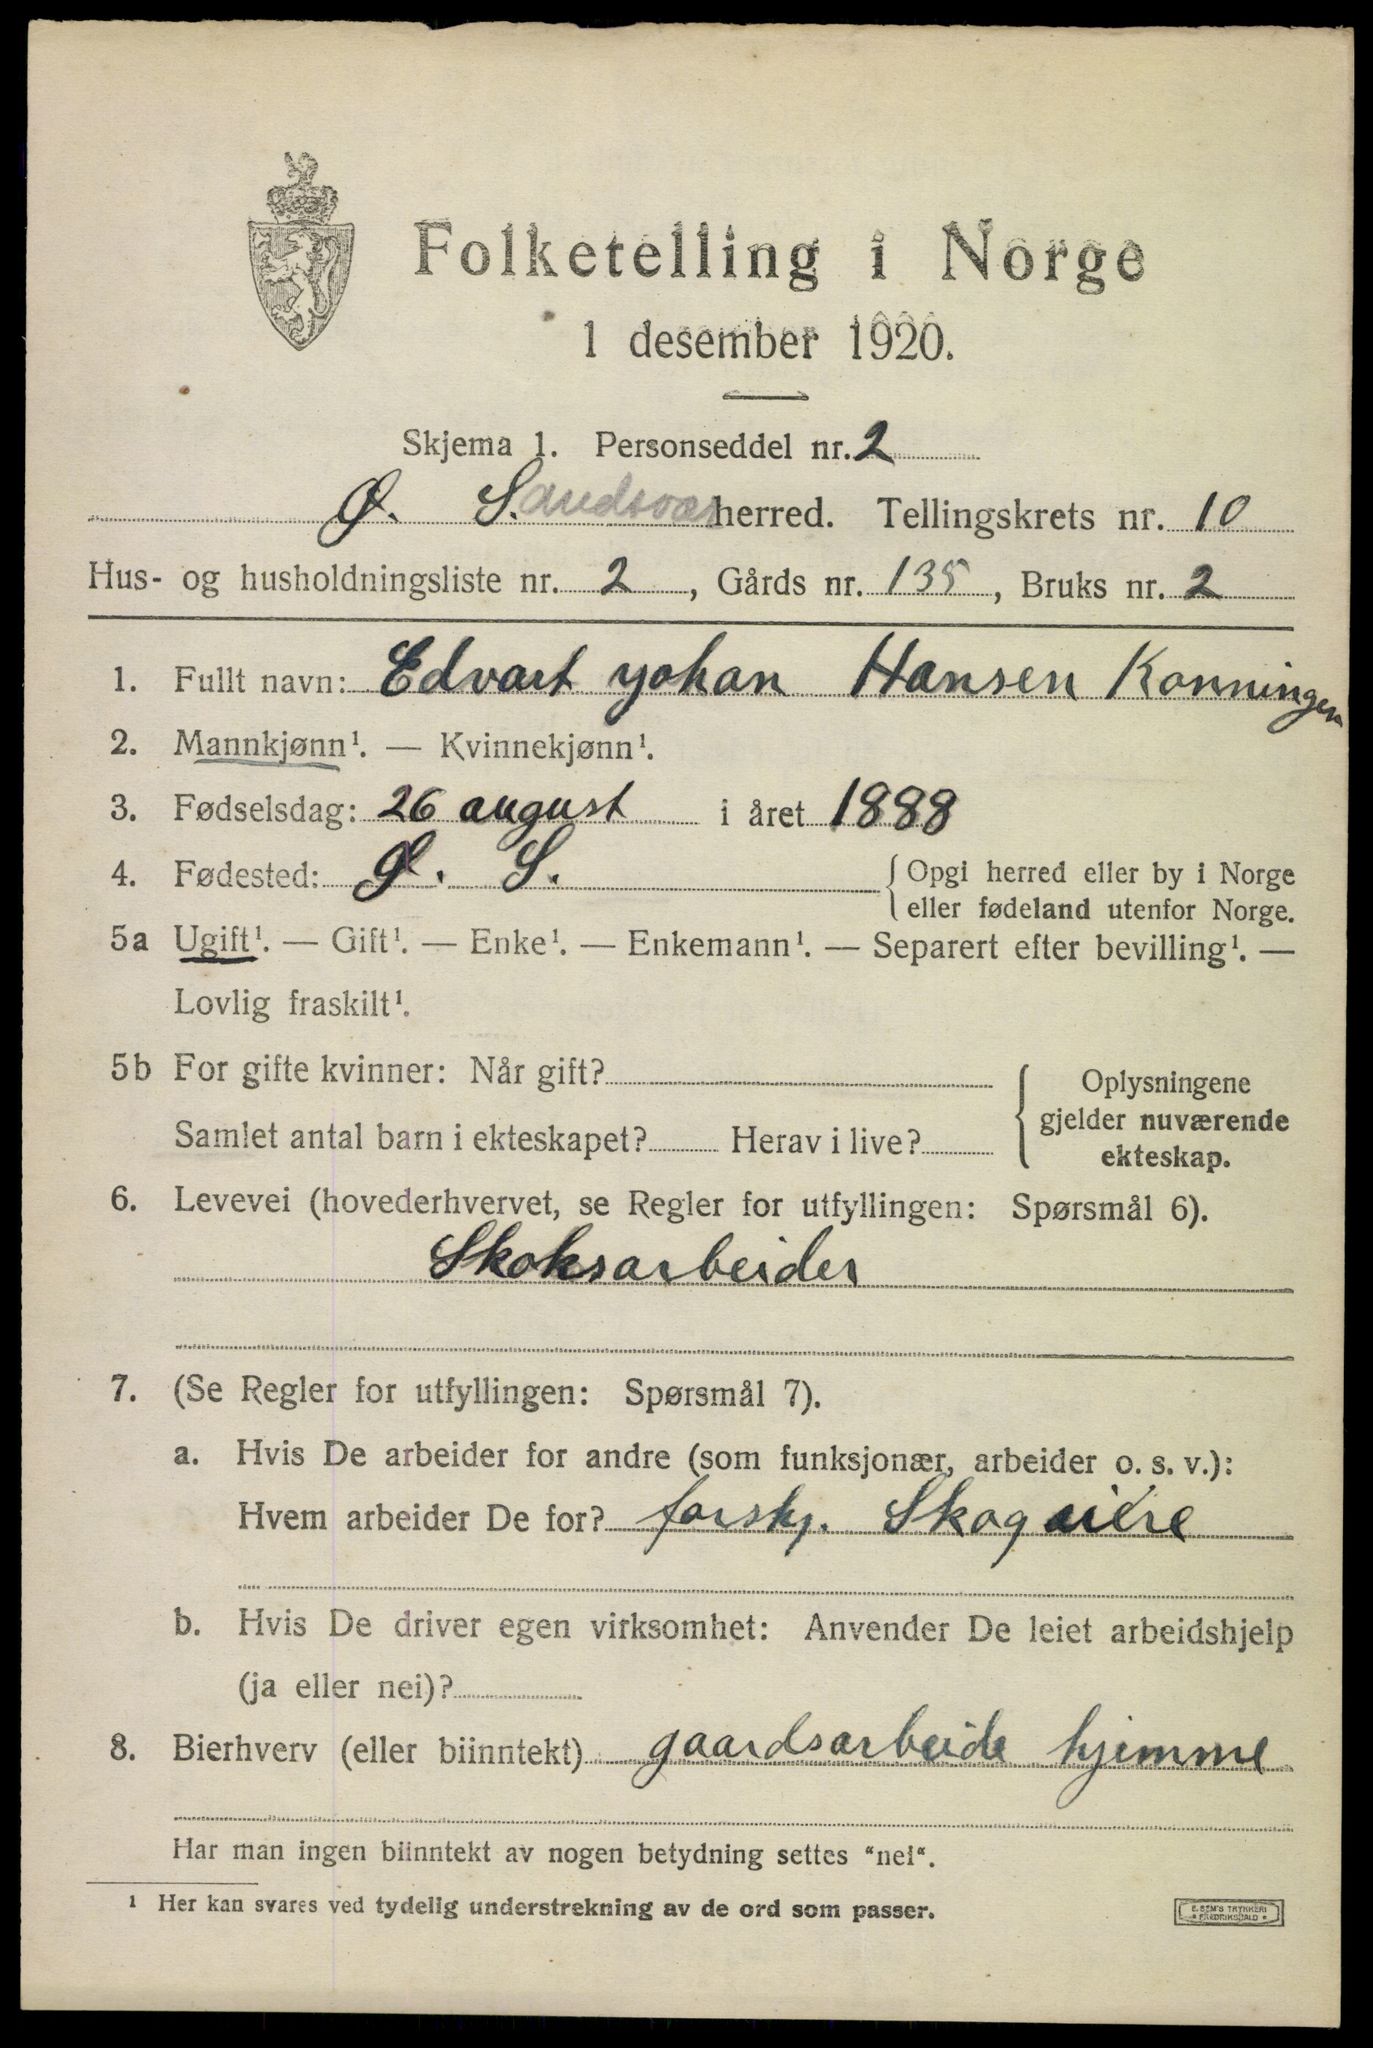 Folketelling i Norge
1 desember 1920.
Skjema 1. Personseddel nr. 2
Ø. S. andsvær herred. Tellingskrets nr. 10
Hus- og husholdningsliste nr. 2, Gårds nr. 135, Bruks nr. 2
1. Fullt navn: Edvart Johan Hansen Konningen
2. Mannkjønn¹. — Kvinnekjønn¹.
3. Fødselsdag: 26 august i året 1888
4. Fødested: Ø. S. { Opgi herred eller by i Norge
eller fødeland utenfor Norge.
5a Ugift¹. — Gift¹. — Enke¹. — Enkemann¹. — Separert efter bevilling¹. —
Lovlig fraskilt¹.
5b For gifte kvinner: Når gift?
Samlet antal barn i ekteskapet? Herav i live?
Oplysningene
gjelder nuværende
ekteskap.
6. Levevei (hovederhvervet, se Regler for utfyllingen: Spørsmål 6).
Skoksarbeider
7. (Se Regler for utfyllingen: Spørsmål 7).
a. Hvis De arbeider for andre (som funksjonær, arbeider o. s. v.):
Hvem arbeider De for? forskj. Skogeiere
b. Hvis De driver egen virksomhet: Anvender De leiet arbeidshjelp
(ja eller nei)?
8. Bierhverv (eller biinntekt) gaardsarbeide hjemme
Har man ingen biinntekt av nogen betydning settes "nei".
¹ Her kan svares ved tydelig understrekning av de ord som passer.
E. SEM'S TRYKKERI
FREDRIKSHALD